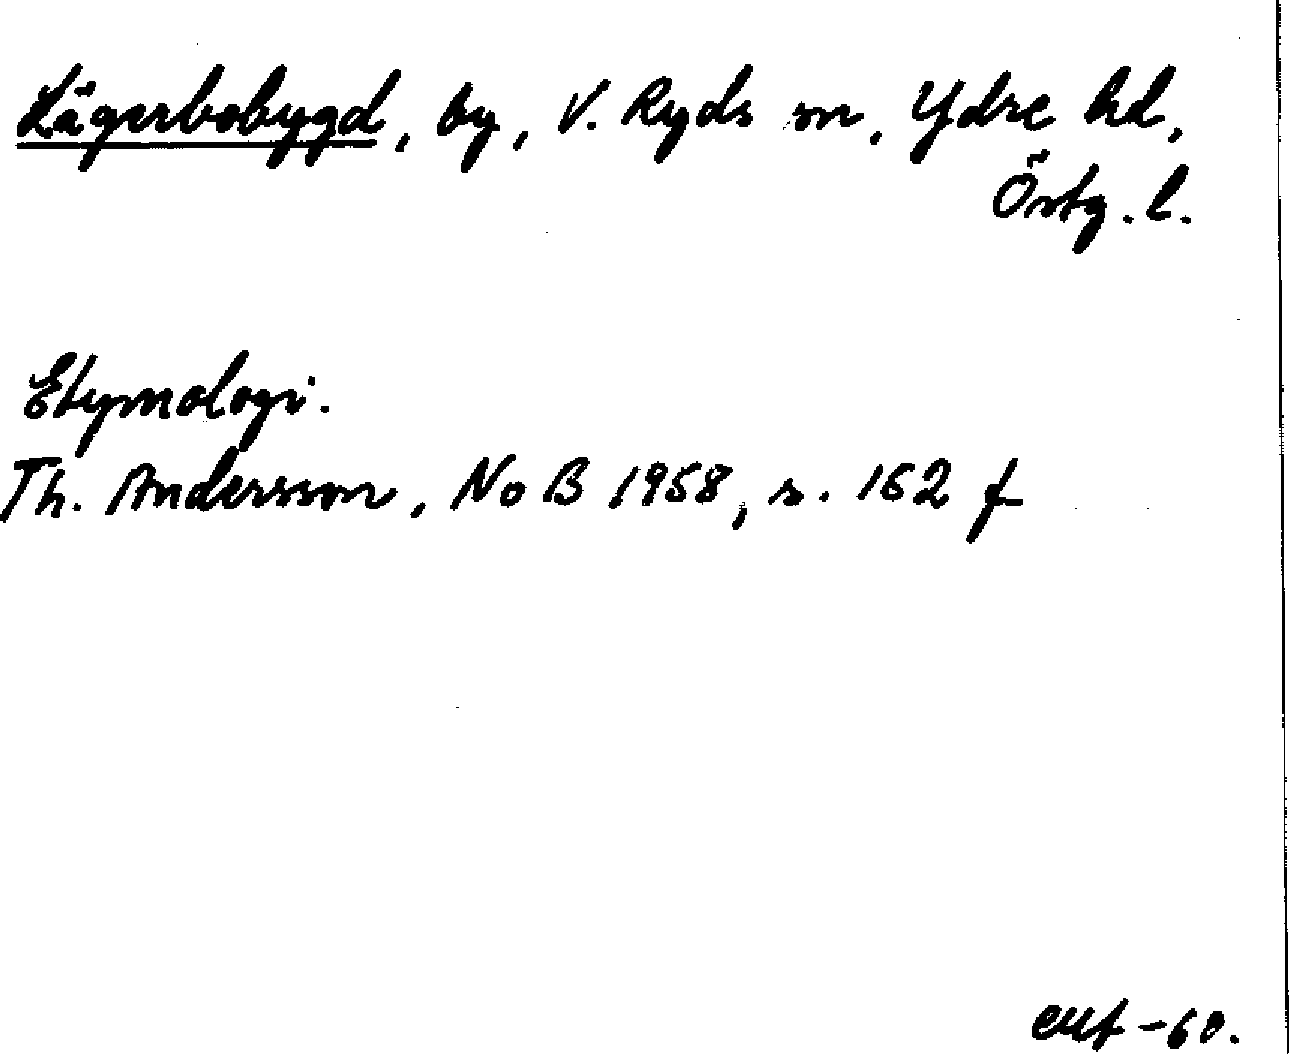 Lägerbobygd, by, V. Ryds sn, Ydre hd,
Östg. l.
Etymologi.
Th. Andersson, NoB 1958, s. 162 f
-60.